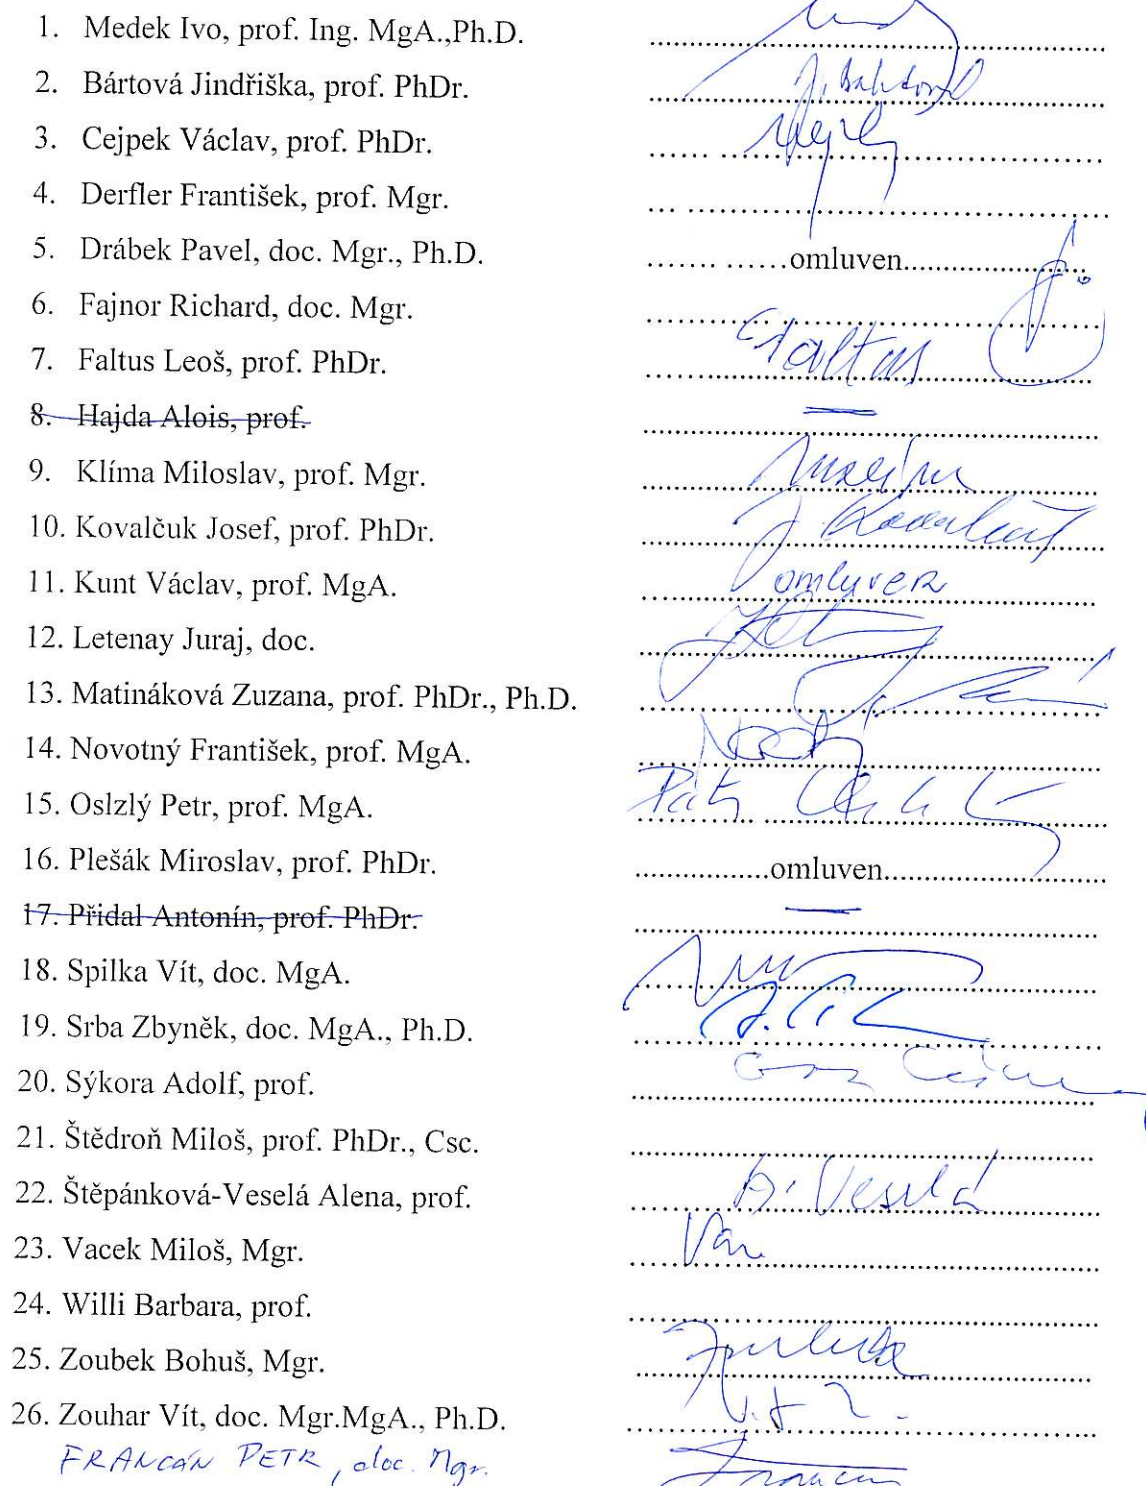 1. Medek Ivo, prof. Ing. MgA.,Ph.D.
2. Bártová Jindřiška, prof. PhDr.
3. Cejpek Václav, prof. PhDr.
4. Derfler František, prof. Mgr.
5. Drábek Pavel, doc. Mgr., Ph.D. ....... ......omluven.......................
6. Fajnor Richard, doc. Mgr.
7. Faltus Leoš, prof. PhDr. Faltus
8. Hajda Alois, prof.
9. Klíma Miloslav, prof. Mgr.
10. Kovalčuk Josef, prof. PhDr. J. Kovalčuk
11. Kunt Václav, prof. MgA. omluven
12. Letenay Juraj, doc.
13. Matináková Zuzana, prof. PhDr., Ph.D.
14. Novotný František, prof. MgA.
15. Oslzlý Petr, prof. MgA. Petr
16. Plešák Miroslav, prof. PhDr. .................omluven............................
17. Přidal Antonín, prof. PhDr.
18. Spilka Vít, doc. MgA.
19. Srba Zbyněk, doc. MgA., Ph.D.
20. Sýkora Adolf, prof.
21. Štědroň Miloš, prof. PhDr., Csc.
22. Štěpánková-Veselá Alena, prof. A. Veselá
23. Vacek Miloš, Mgr.
24. Willi Barbara, prof.
25. Zoubek Bohuš, Mgr.
26. Zouhar Vít, doc. Mgr.MgA., Ph.D.
FRANCÁN PETR, doc. Mgr.